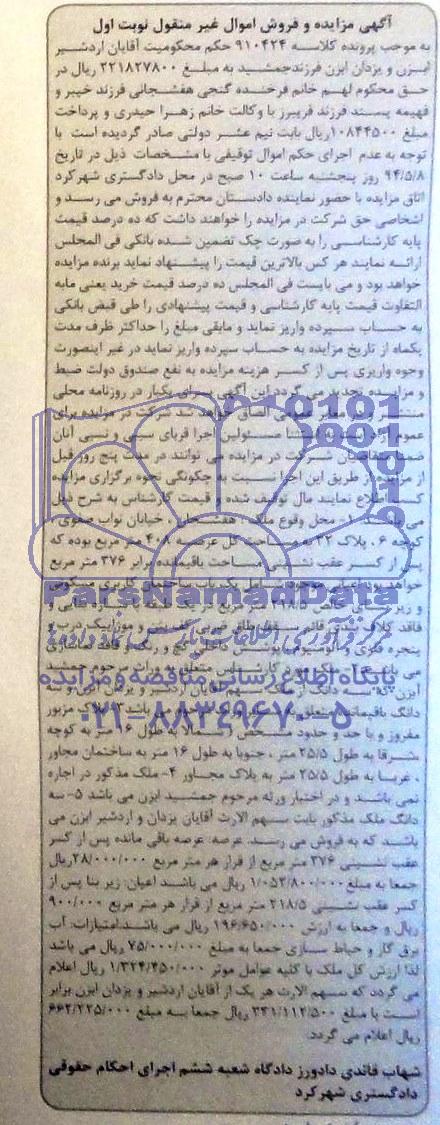 آگهی مزایده و فروش اموال غیر منقول نوبت اول
به موجب پرونده کلاسه ۹۱۰۴۲۴ حکم محکومیت آقایان اردشیر
ایزن و یزدان ایزن فرزندجمشید به مبلغ ۲۲۱۸۲۷۸۰۰ ریال در
حق محکوم لهم خانم فرخنده گنجی هفشجانی فرزند خیبر و
فهیمه پسند فرزند فریبرز با وکالت خانم زهرا حیدری و پرداخت
مبلغ ۱۰۸۴۴۵۰۰ریال بابت نیم عشر دولتی صادر گردیده است با
توجه به عدم اجرای حکم اموال توقیفی با مشخصات ذیل در تاریخ
۹۴/۵/۸ روز پنجشنبه ساعت ۱۰ صبح در محل دادگستری شهرکرد
اتاق مزایده با حضور نماینده دادستان محترم به فروش می رسد و
اشخاصی حق شرکت در مزایده را خواهند داشت که ده درصد قیمت
پایه کارشناسی را به صورت چک تضمین شده بانکی فی المجلس
ارائه نمایند هر کس بالاترین قیمت را پیشنهاد نماید برنده مزایده
خواهد بود و می بایست فی المجلس ده درصد قیمت خرید یعنی مابه
التفاوت قیمت پایه کارشناسی و قیمت پیشنهادی را طی قبض بانکی
به حساب سپرده واریز نماید و مابقی مبلغ را حداکثر ظرف مدت
یکماه از تاریخ مزایده به حساب سپرده واریز نماید در غیر اینصورت
وجوه واریزی پس از کسر هزینه مزایده به نفع صندوق دولت ضبط
و مزایده تجدید می گردد.این آگهی برای یکبار در روزنامه محلی
الصاق خواهد شد شرکت در مزایده برای
عموم آزاد است مسئولین اجرا قربای سببی و نسبی آنان
ضمنا متقاضیان شرکت در مزایده می توانند در مدت پنج روز قبل
از مزایده از طریق این اجرا نسبت به چگونگی نحوه برگزاری مزایده
کسب اطلاع نمایند مال توقیف شده و قیمت کارشناس به شرح ذیل
می باشد: محل وقوع ملک: هفشجان، خیابان نواب صفوی،
کوچه ۶، پلاک ۲۲ به مساحت کل عرصه ۴۰۸ متر مربع بوده که
پس از کسر عقب نشینی مساحت باقیمانده برابر ۳۷۶ متر مربع
خواهد بود شامل یک باب ساختمان کاربری مسکونی
و زیر بنای خالص ۲۱۸/۵ متر مربع در یک طبقه با
فاقد کلاف سقف طاق ضربی کف بتن و موزاییک درب و
پنجره فلزی و آلومینیوم پوشش داخلی گچ و رنگ و فاقد نماسازی
می باشد ملک مورد کارشناسی متعلق به وراث مرحوم جمشید
ایزن سه دانگ از ملک سهم آقایان اردشیر و یزدان ایزن و سه
دانگ باقیمانده متعلق به می باشد ۳-پلاک مزبور
مفروز و با حد و حدود مشخص شمالا به طول ۱۶ متر به کوچه
، شرقا به طول ۲۵/۵ متر ، جنوبا به طول ۱۶ متر به ساختمان مجاور
، غربا به طول ۲۵/۵ متر به پلاک مجاور ۴- ملک مذکور در اجاره
نمی باشند و در اختیار ورثه مرحوم جمشید ایزن می باشد ۵-سه
دانگ ملک مذکور بابت سهم الارث آقایان یزدان و اردشیر ایزن می
باشد که به فروش می رسد. عرصه: عرصه باقی مانده پس از کسر
عقب نشینی ۳۷۶ متر مربع از قرار هر متر مربع ۲/۸۰۰/۰۰۰ریال
جمعا به مبلغ ۱/۰۵۲/۸۰۰/۰۰۰ ریال می باشد اعیان: زیر بنا پس از
کسر عقب نشینی ۲۱۸/۵ متر مربع از قرار هر متر مربع ۹۰۰/۰۰۰
ریال و جمعا به ارزش ۱۹۶/۶۵۰/۰۰۰ ریال می باشد.امتیازات: آب
برق گاز و حیاط سازی جمعا به مبلغ ۷۵/۰۰۰/۰۰۰ ریال می باشد
لذا ارزش کل ملک با کلیه عوامل موثر ۱/۳۲۴/۴۵۰/۰۰۰ ریال اعلام
می گردد که سهم الارث هر یک از آقایان اردشیر و یزدان ایزن برابر
است با مبلغ ۳۳۱/۱۱۲/۵۰۰ ریال جمعا به مبلغ ۶۶۲/۲۲۵/۰۰۰
ریال اعلام می گردد.
شهاب قائدی دادورز دادگاه شعبه ششم اجرای احکام حقوقی
دادگستری شهرکرد
ParsNamadData
پایگاه اطلاع رسانی مناقصه و مزایده
۰۲۱-۸۸۳۴۹۶۷۰-۵